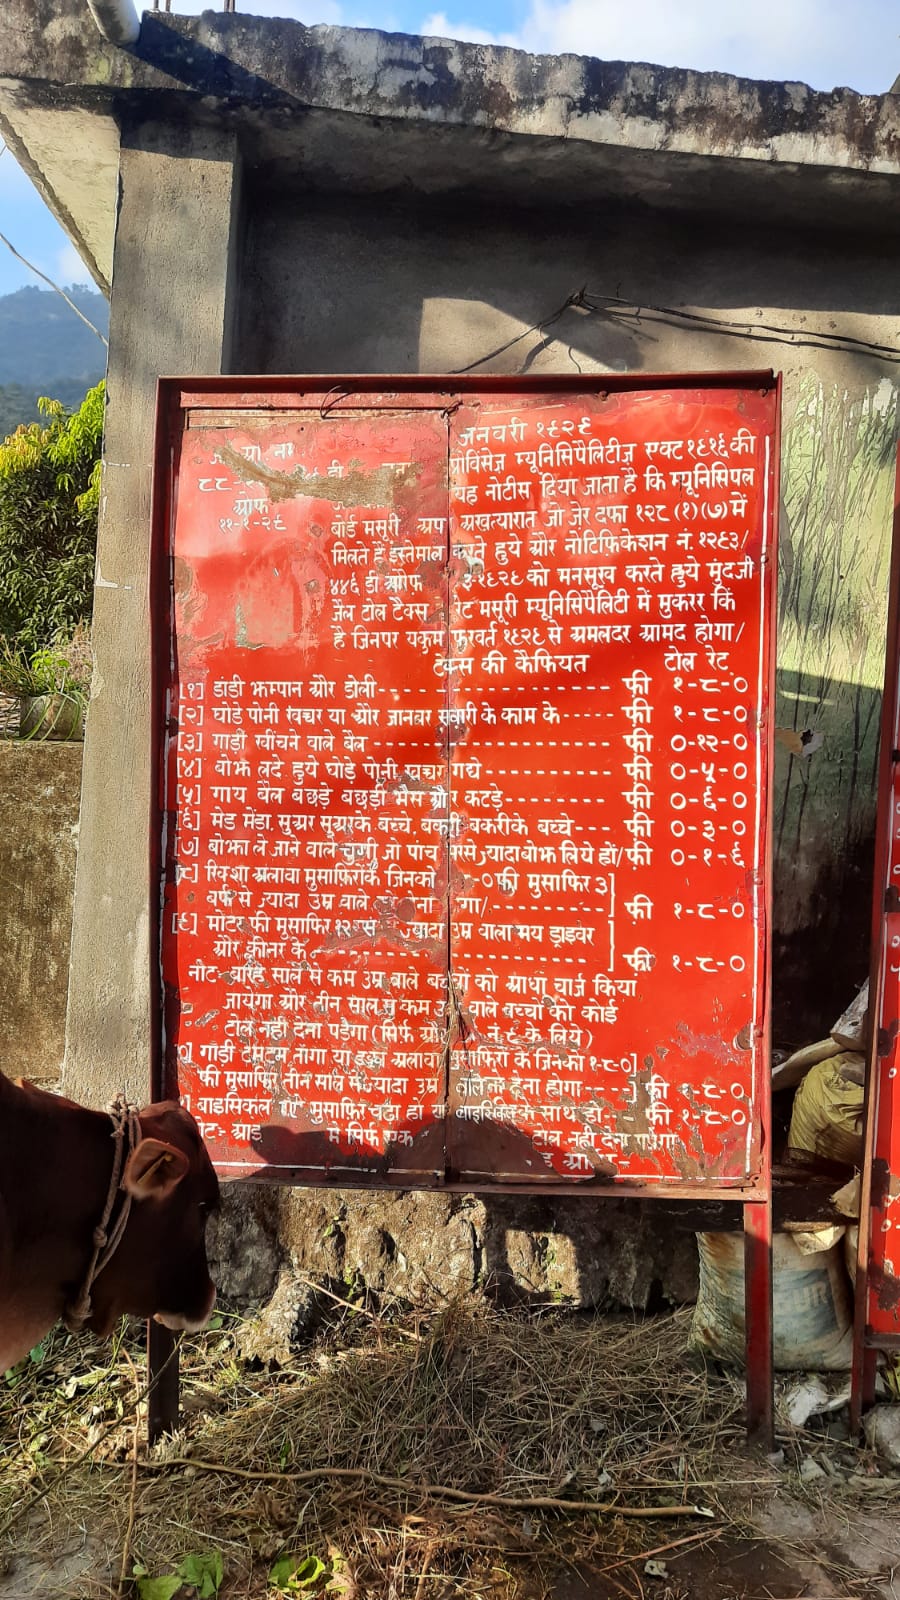 जनवरी १९२९
प्रोविंसेज़ म्यूनिसिपैलिटीज़ एक्ट १९१६ की
यह नोटीस दिया जाता है कि म्यूनिसिपल
ओफ
११-१-२९
बोर्ड मसूरी अप अखत्यारात जो ज़ेर दफा १२८ (१) (७) में
मिलते हैं इस्तेमाल करते हुये और नोटिफ़िकेशन नं. १२९३/
४४६ डी ओफ़ ३-१९२८ को मनसूख करते हुये मुंदर्जा
जेल टोल टैक्स रेट मसूरी म्यूनिसिपैलिटी में मुकरर किं
है जिनपर यकुम फ़रवरी १९२९ से अमलदर आमद होगा/
टैक्स की कैफियत टोल रेट
[१] डांडी झम्पान और डोली फ़ी १-८-०
[२] घोड़े पोनी खच्चर या और जानवर सवारी के काम के फ़ी १-८-०
[३] गाड़ी खींचने वाले बैल फ़ी ०-१२-०
[४] बोझ लदे हुये घोड़े पोनी खच्चर गधे फ़ी ०-५-०
[५] गाय बैल बछड़े बछड़ी भैस और कटड़े फ़ी ०-६-०
[६] भेड मेंढा, सुअर सुअरके बच्चे, बकरी बकरीके बच्चे फ़ी ०-३-०
[७] बोझा ले जाने वाले कुली जो पांच सेरसे ज्यादा बोझ लिये हों/ फ़ी ०-१-६
[८] रिक्शा अलावा मुसाफ़िरोंके जिनको ०फी मुसाफिर ३]
बर्ष से ज्यादा उम्र वाले को देना होगा/ फ़ी १-८-०
[९] मोटर फी मुसाफिर १२ से ज्यादा उम्र वाला मय ड्राइवर
और क्लीनर के फ़ी १-८-०
नोट:- बारह साल से कम उम्र वाले बच्चों को आधा चार्ज किया
जायेगा और तीन साल से कम उम्र वाले बच्चों को कोई
टोल नही देना पड़ेगा (सिर्फ़ नं. ९ के लिये)
०] गाड़ी टमटम तांगा या इक्का अलावा मुसाफिरों के जिनको १-८-०]
फ़ी मुसाफिर तीन साल से ज्यादा उम्र वाले को देना होगा फ़ी १-८-०
१] बाइसिकल मुसाफ़िर चढ़ा हो या बाइसिकिल के साथ हो फ़ी १-८-०
नोट:- में सिर्फ एक टोल नही देना पड़ेगा